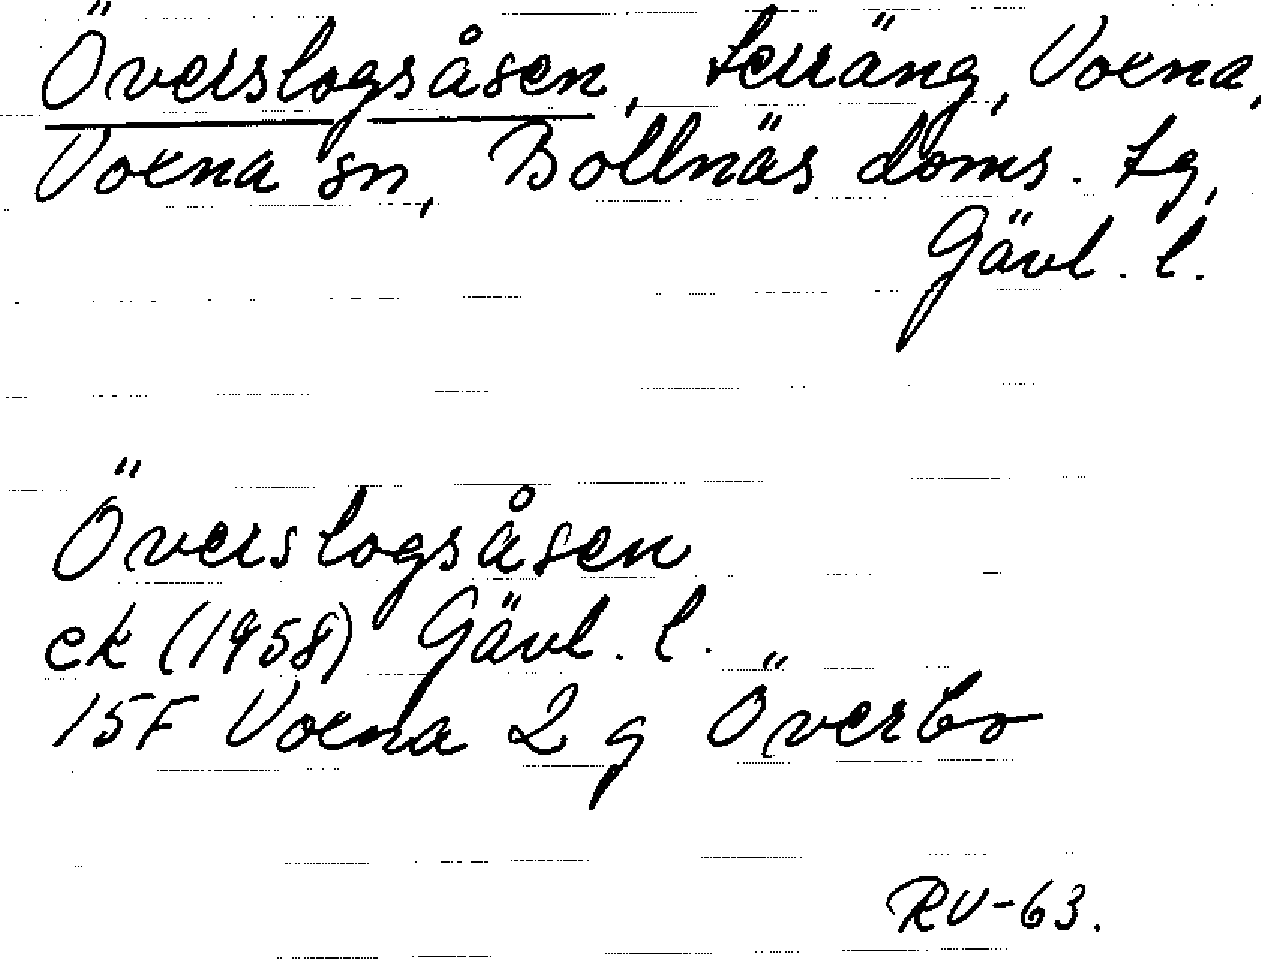 Överslogsåsen, terräng, Voxna,
Voxna sn, Bollnäs doms. tg,
Gävl. l.
Överslogsåsen
ek (1958) Gävl. l.
15F Voxna 2 g Överbo
RV-63.